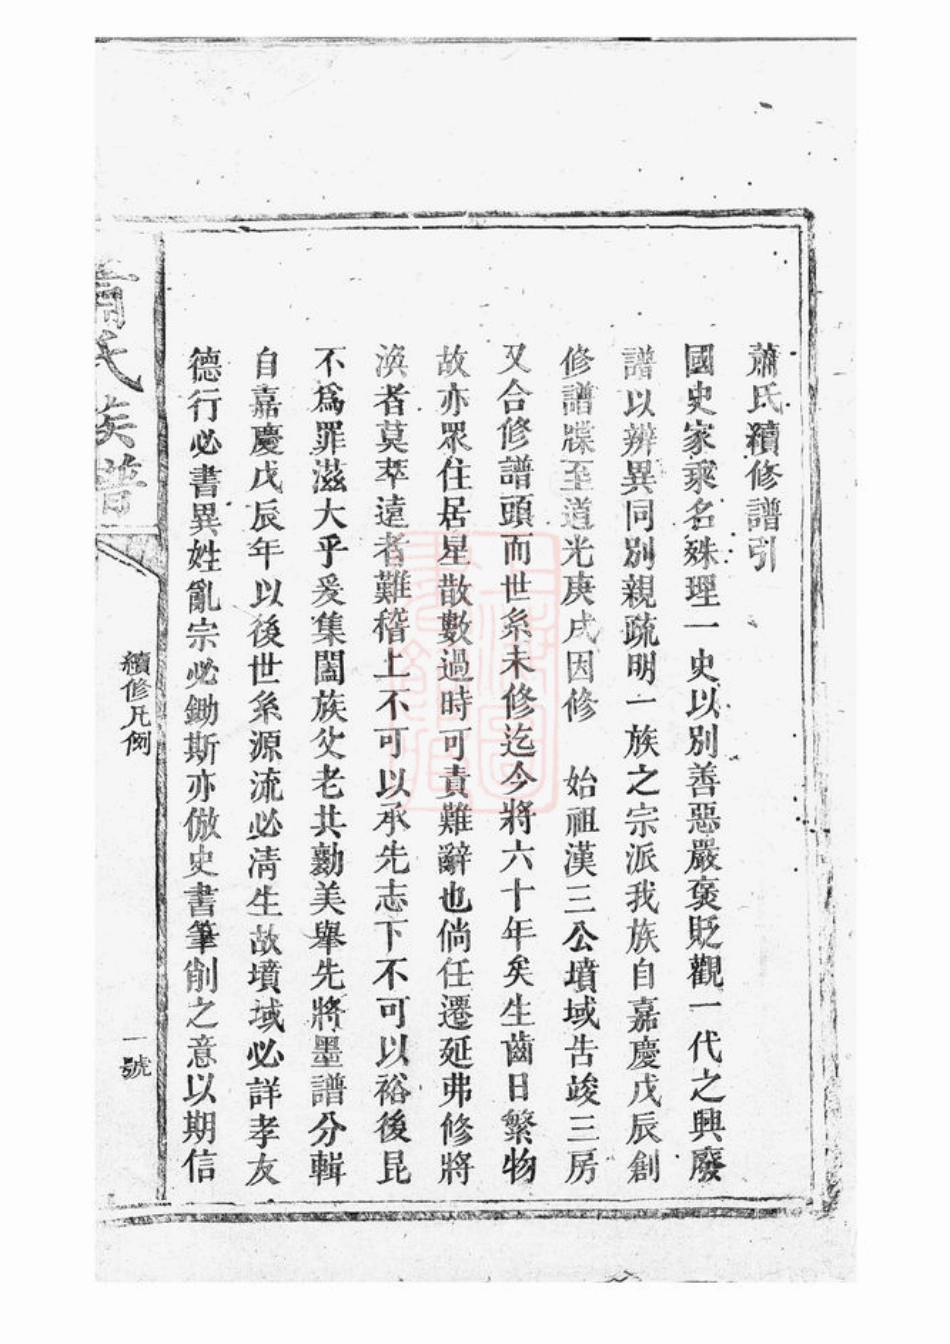 蕭氏續修譜引
國史家乘名殊理一史以別善惡嚴褒貶觀一代之興廢
譜以辨異同別親疏明一族之宗派我族自嘉慶戊辰創
修譜牒至道光庚戌因修　始祖漢三公墳域告竣三房
又合修譜頭而世系未修迄今將六十年矣生齒日繁物
故亦眾住居星散數過時可責難辭也倘任遷延弗修將
渙者莫萃遠者難稽上不可以承先志下不可以裕後昆
不爲罪滋大乎爰集闔族父老共勷美舉先將墨譜分輯
自嘉慶戊辰年以後世系源流必淸生故墳域必詳孝友
德行必書異姓亂宗必鋤斯亦倣史書筆削之意以期信
蕭氏族譜
續修凡例
一號